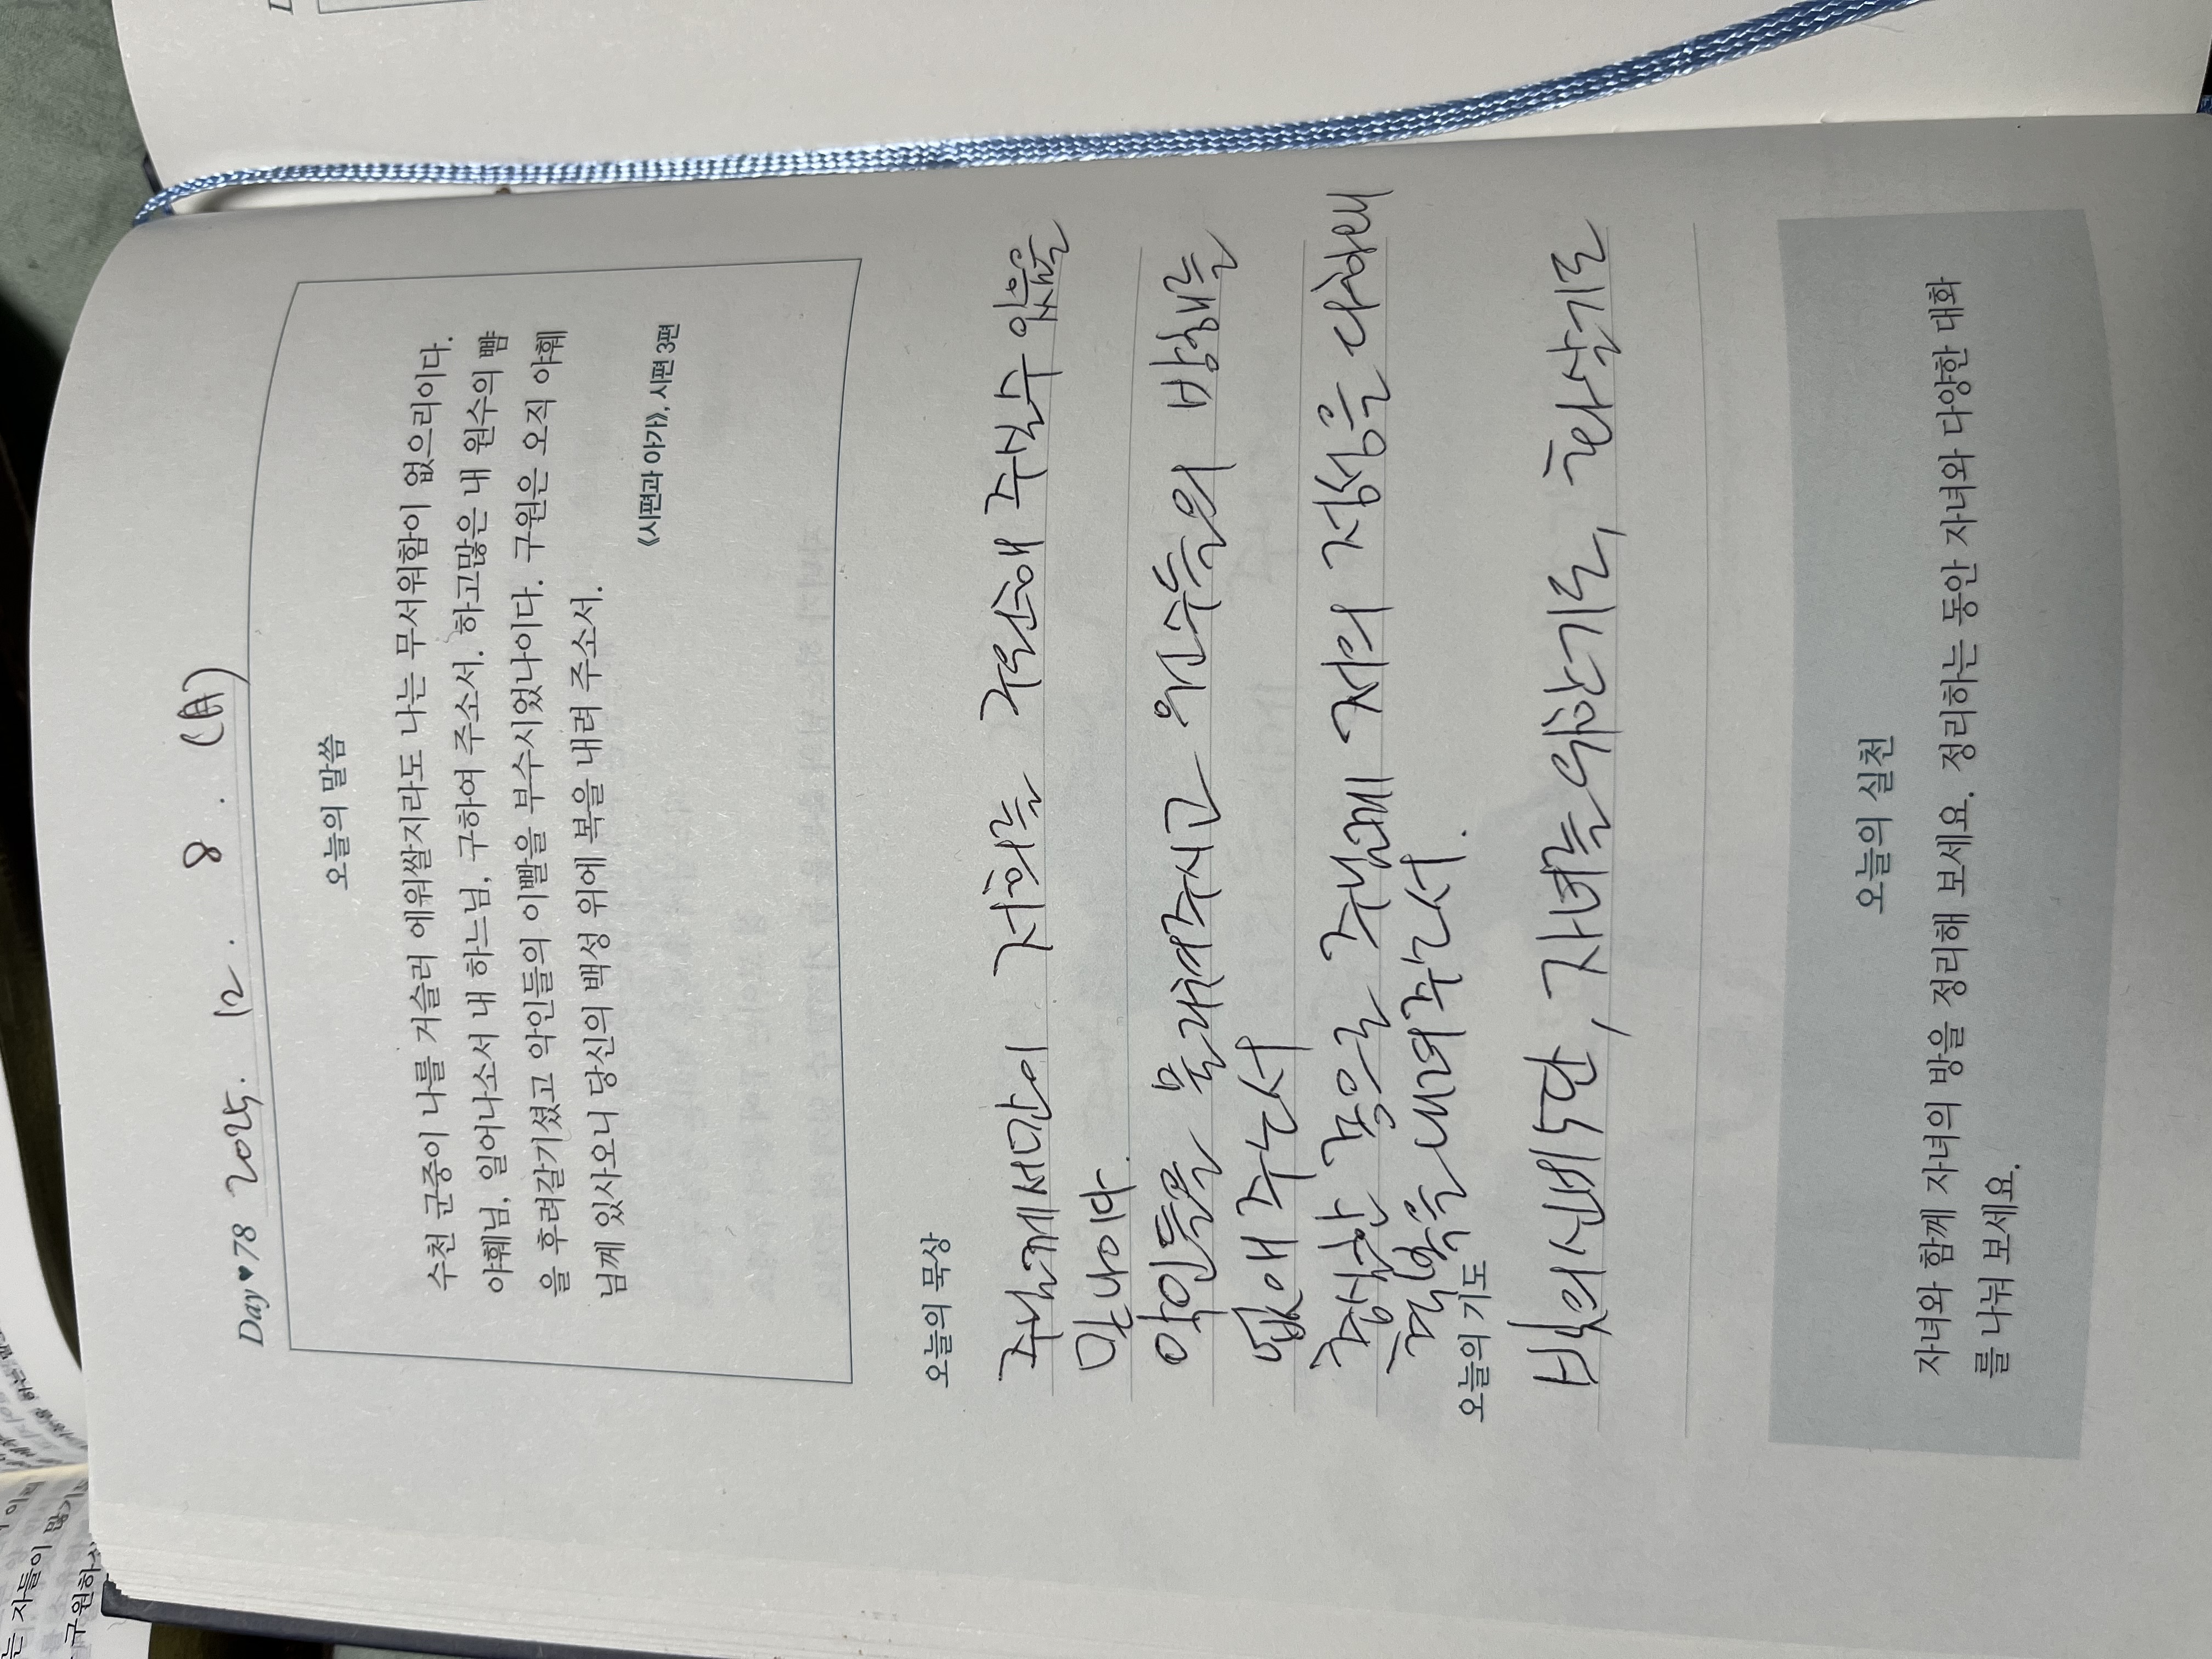 Day♥78 2025. 12. 8. (月)
오늘의 말씀
수천 군중이 나를 거슬러 에워쌀지라도 나는 무서워함이 없으리이다.
야훼님, 일어나소서 내 하느님, 구하여 주소서. 하고많은 내 원수의 뺨
을 후려갈기셨고 악인들의 이빨을 부수시었나이다. 구원은 오직 야훼
님께 있사오니 당신의 백성 위에 복을 내려 주소서.
《시편과 아가》, 시편 3편
오늘의 묵상
주님께서만이 저희를 구원해 주실 수 있음을
믿나이다.
악인들을 물리쳐주시고 원수들의 방해를
없애 주소서
찬양 높은 주님께 저의 정성을 다하래
축복을 내려주소서.
오늘의 기도
빛의신비5단, 자녀를위한기도, 화살기도
오늘의 실천
자녀와 함께 자녀의 방을 정리해 보세요. 정리하는 동안 자녀와 다양한 대화
를 나눠 보세요.
는 자들이
구원하